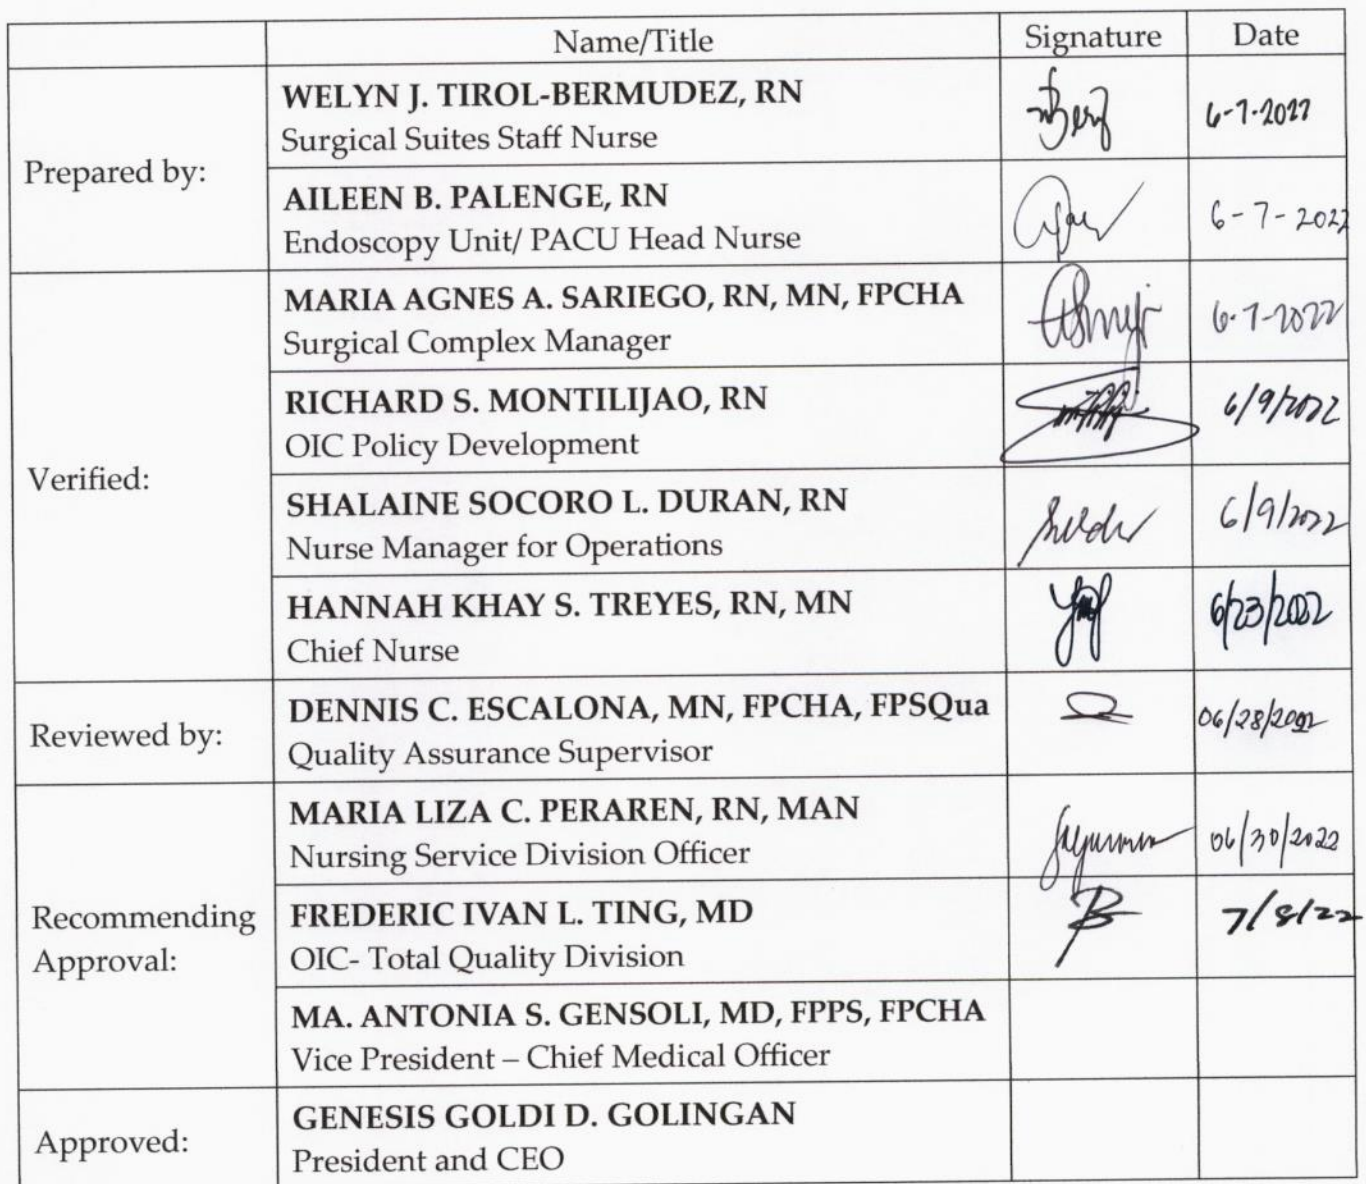 Name/Title Signature Date
Prepared by:
WELYN J. TIROL-BERMUDEZ, RN
Surgical Suites Staff Nurse
6-7-2022
AILEEN B. PALENGE, RN
Endoscopy Unit/ PACU Head Nurse
6-7-2022
Verified:
MARIA AGNES A. SARIEGO, RN, MN, FPCHA
Surgical Complex Manager
6-7-2022
RICHARD S. MONTILIJAO, RN
OIC Policy Development
6/9/2022
SHALAINE SOCORO L. DURAN, RN
Nurse Manager for Operations
6/9/2022
HANNAH KHAY S. TREYES, RN, MN
Chief Nurse
6/23/2022
Reviewed by:
DENNIS C. ESCALONA, MN, FPCHA, FPSQua
Quality Assurance Supervisor
06/28/2022
Recommending
Approval:
MARIA LIZA C. PERAREN, RN, MAN
Nursing Service Division Officer
06/30/2022
FREDERIC IVAN L. TING, MD
OIC- Total Quality Division
7/8/22
MA. ANTONIA S. GENSOLI, MD, FPPS, FPCHA
Vice President – Chief Medical Officer
Approved:
GENESIS GOLDI D. GOLINGAN
President and CEO